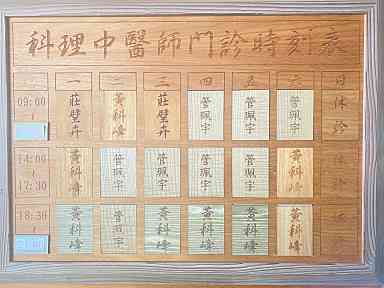 科理中醫師門診時刻表
一 二 三 四 五 六 日
09:00 莊璧卉 黃科峰 莊璧卉 管珮宇 管珮宇 管珮宇 休診
14:00 ~ 17:30 黃科峰 管珮宇 管珮宇 管珮宇 管珮宇 黃科峰
18:30 黃科峰 管珮宇 黃科峰 黃科峰 黃科峰 黃科峰